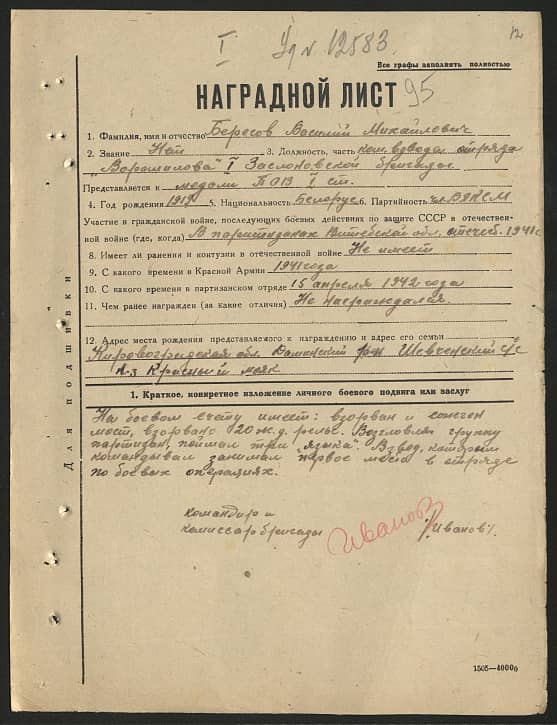 12
I Уд № 12583.
Все графы заполнять полностью
НАГРАДНОЙ ЛИСТ 95
1. Фамилия, имя и отчество Бересов Василий Михайлович
2. Звание Нет 3. Должность, часть ком. взвода отряда
"Ворошилова" I Заслоновской бригады.
Представляется к медали ПОВ I ст.
4. Год рождения 5. Национальность Белорус 6. Партийность чл. ВЛКСМ
Участие в гражданской войне, последующих боевых действиях по защите СССР и отечествен-
ной войне (где, когда) В партизанах Витебской обл, отечеств. 1941г
8. Имеет ли ранения и контузии в отечественной войне Не имеет
9. С какого времени в Красной Армии 1941 года
10. С какого времени в партизанском отряде 15 апреля 1942 года
11. Чем ранее награжден (за какие отличия) Не награждался.
12. Адрес места рождения представляемого к награждению и адрес его семьи
Кировоградская обл. р-н Шевченский с/с
к-з Красный маяк
1. Краткое, конкретное изложение личного боевого подвига или заслуг
На боевом счету имеет: взорван и сожжен
мост, взорвано 20 ж.д. рельс. Возглавляя группу
партизан, поймал три "языка". Взвод, которым
командывал занимал первое место в отряде
по боевых операциях.
командир и
комиссар бригады Иванов /Иванов/.
Для подшивки
1505—40000